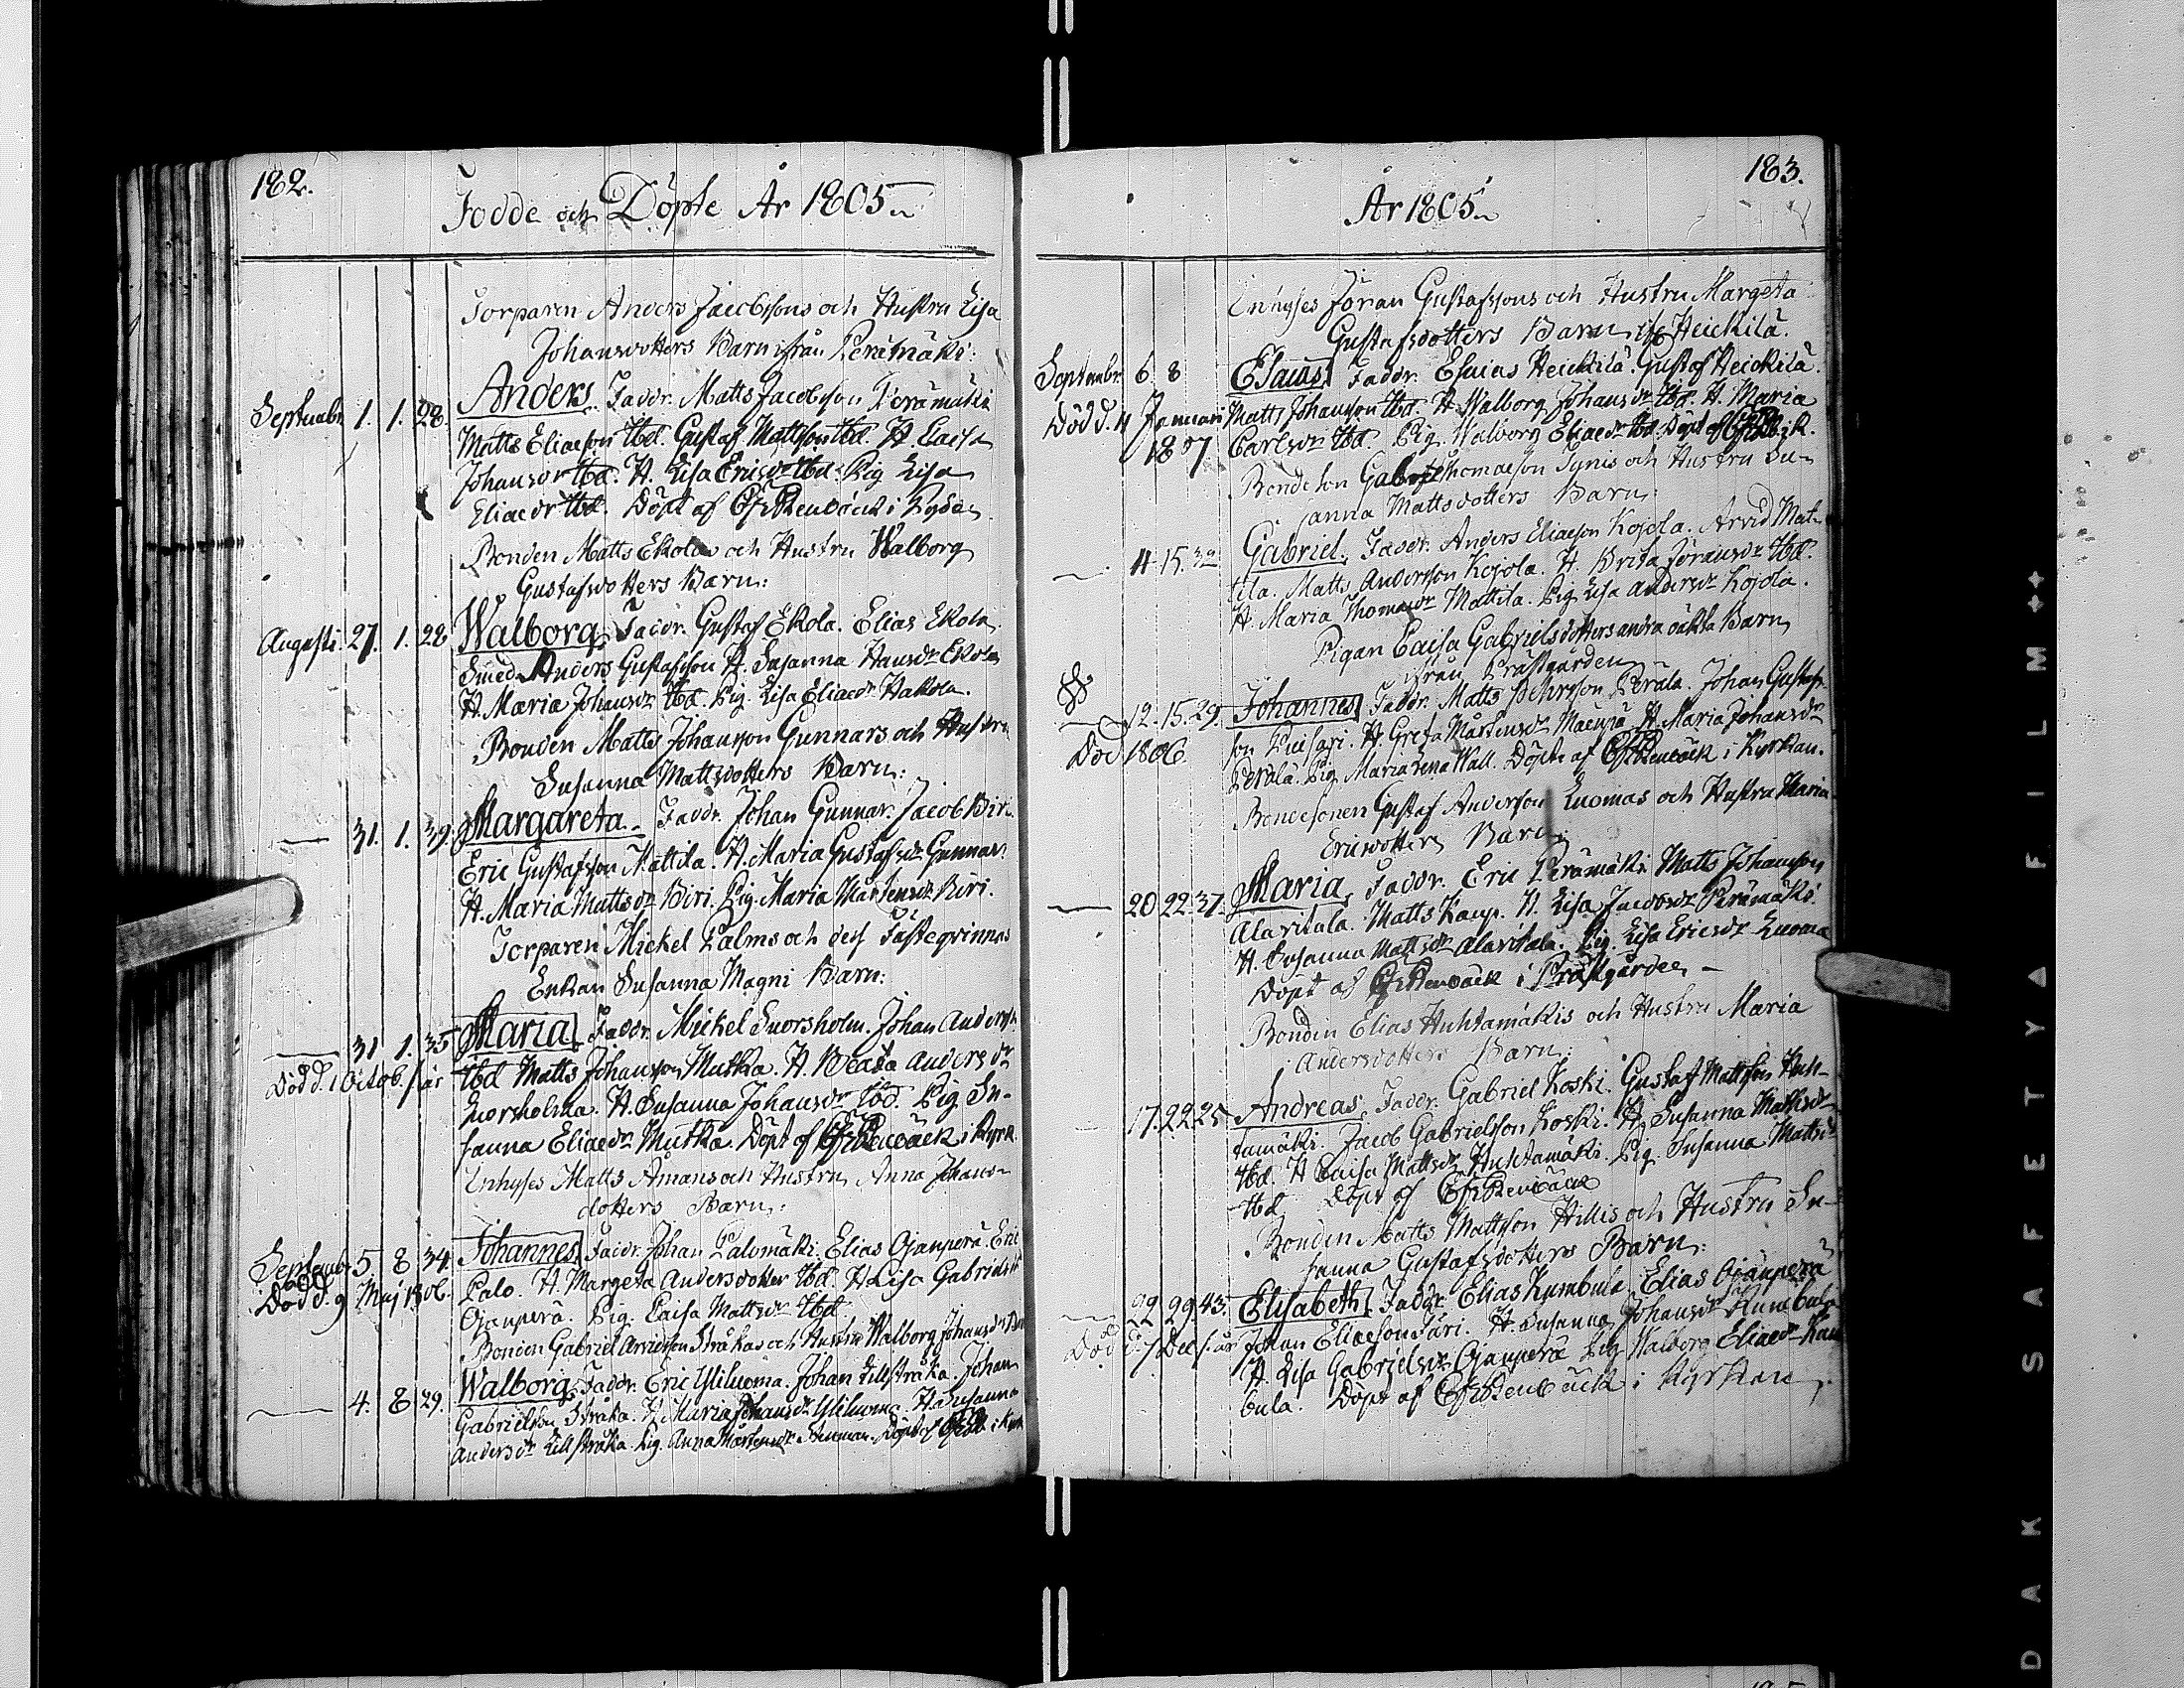 182.
Födde och Döpte År 1805
Torparen Anders Jacobssons och Hustru Lisa
Johansdotters Barn ifrån Perämäki:
Septembr 1. 1. 28. Anders Faddr. Matts Jacobsson Perämäki
Matts Eliaeson Ibd. Gustaf Mattsson Ibd. H. Caisa
Johansdr Ibd. H. Lisa Ericsdr Ibd. Pig Lisa
Eliaedr Ibd. Döpt af i
Bonden Matts Ekolas och Hustru Walborg
Gustafsdotters Barn:
Augusti. 27. 1. 28 Walborg, Faddr. Gustaf Ekola. Elias Ekola
Smed. Anders Gustafsson H. Susanna Hansdr Ekola
H. Maria Johansdr Ibd. Pig. Lisa Eliaedr Hakola.
Bonden Matts Johansson Gunnars och Hustru
Susanna Mattsdotters Barn:
— 31. 1. 39. Margareta. Faddr. Johan Gunnar. Jacob Biri.
Eric Gustafsson Mattila. H. Maria Gustafsdr Gunnar.
H. Maria Mattsdr Biri. Pig. Maria Mårtensdr Biri.
Torparen Mickel Palms och dess Fästeqvinnas
Enkan Susanna Magni Barn:
— 31 1. 35 Maria Faddr. Mickel Snorsholm. Johan Anderss.
Död d. 1 Octob. s. år Ibd Matts Johansson Mutka. H. Beata Andersdr
Snorsholma. H. Susanna Johansdr Ibd. Pig. Su-
sanna Eliaedr Mutka. Döpt af i Kyrk.
Inhyses Matts Åmans och Hustru Anna Johans-
dotters Barn:
Septembr 5 8 34. Johannes. Faddr. Johan Palomäki. Elias Ojanperä. Eric
Död d. 9 Maj 1806. Palo. H. Margeta Andersdotter Ibd. H Lisa Gabrielsdr
Ojanperä. Pig. Caisa Mattsdr Ibd
Bonden Gabriel Arvidsson Stråkas och Hustru Walborg Johansdr Barn
— 4. 8 29. Walborg. Faddr. Eric Yliluoma. Johan Lillstråka. Johan
Gabrielsson Stråka. H. Maria Johansdr Yliluoma. H. Susanna
Andersdr Lillstråka. Pig. Anna Mårtensdr Döpt af i Kyrk
183.
År 1805
Inhyses Jöran Gustafssons och Hustru Margeta
Gustafsdotters Barn if. Heickilä.
Septembr. 6. 8 Esaias Faddr. Esaias Heickilä. Gustaf Heickilä.
Död d. 4 Januari Matts Johansson Ibd. H. Walborg Johansdr Ibd. H. Maria
1807. Carlsdr Ibd. Pig. Walborg Eliaedr Ibd. Döpt af i K.
Bondeson Gabriel Thomaeson Tynis och Hustru Su-
sanna Mattsdotters Barn:
— 4. 15. 32 Gabriel. Faddr. Anders Eliaeson Kojola. Arvid Mat-
tila. Matts Andersson Kojola. H. Brita Jöransdr Ibd.
H. Maria Thomaedr Mattila. Pig. Lisa Andersdr Kojola.
Pigan Caisa Gabrielsdotters andra oäkta Barn
ifrån Prästgården
— 12. 15. 29. Johannes Faddr. Matts Perälä. Johan Gustafs-
Död 1806. son Luisari. H. Greta Mårtensdr H. Maria Johansdr
Perälä. Pig. Maria Lena Wall. Döpte af i Kyrkan.
Bondesonen Gustaf Anderson Luomas och Hustru Maria
Ericsdotters Barn:
— 20. 22. 37. Maria, Faddr. Eric Perämäki. Matts Johansson
Alaritala. Matts Kaup. H. Lisa Jacobsdr Perämäki.
H. Susanna Mattsdr Alaritala. Pig. Lisa Ericsdr Luoma
Döpt af i Prästgården —
Bonden Elias Huhtamäkis och Hustru Maria
Andersdotters Barn:
17. 22 25 Andreas. Faddr. Gabriel Koski. Gustaf Mattsson Huh-
tamäki. Jacob Gabrielsson Koski. H. Susanna Mattsdr
Ibd. H Caisa Mattsdr Huhtamäki. Pig. Susanna Mattsdr
Ibd. Döpt af
Bonden Matts Mattsson Hillis och Hustru Su-
sanna Gustafsdotters Barn:
— 22 29. 43. Elisabeth. Faddr. Elias Kumbula. Elias Ojänperä
Död d. 7 Dec s. år Johan Eliaeson Järi. H. Susanna Johansdr Kumbula
H. Lisa Gabrielsdr Ojanperä Pig. Walborg Eliaedr Kum
bula. Döpt af i Kyrkan.
SAFETY FILM